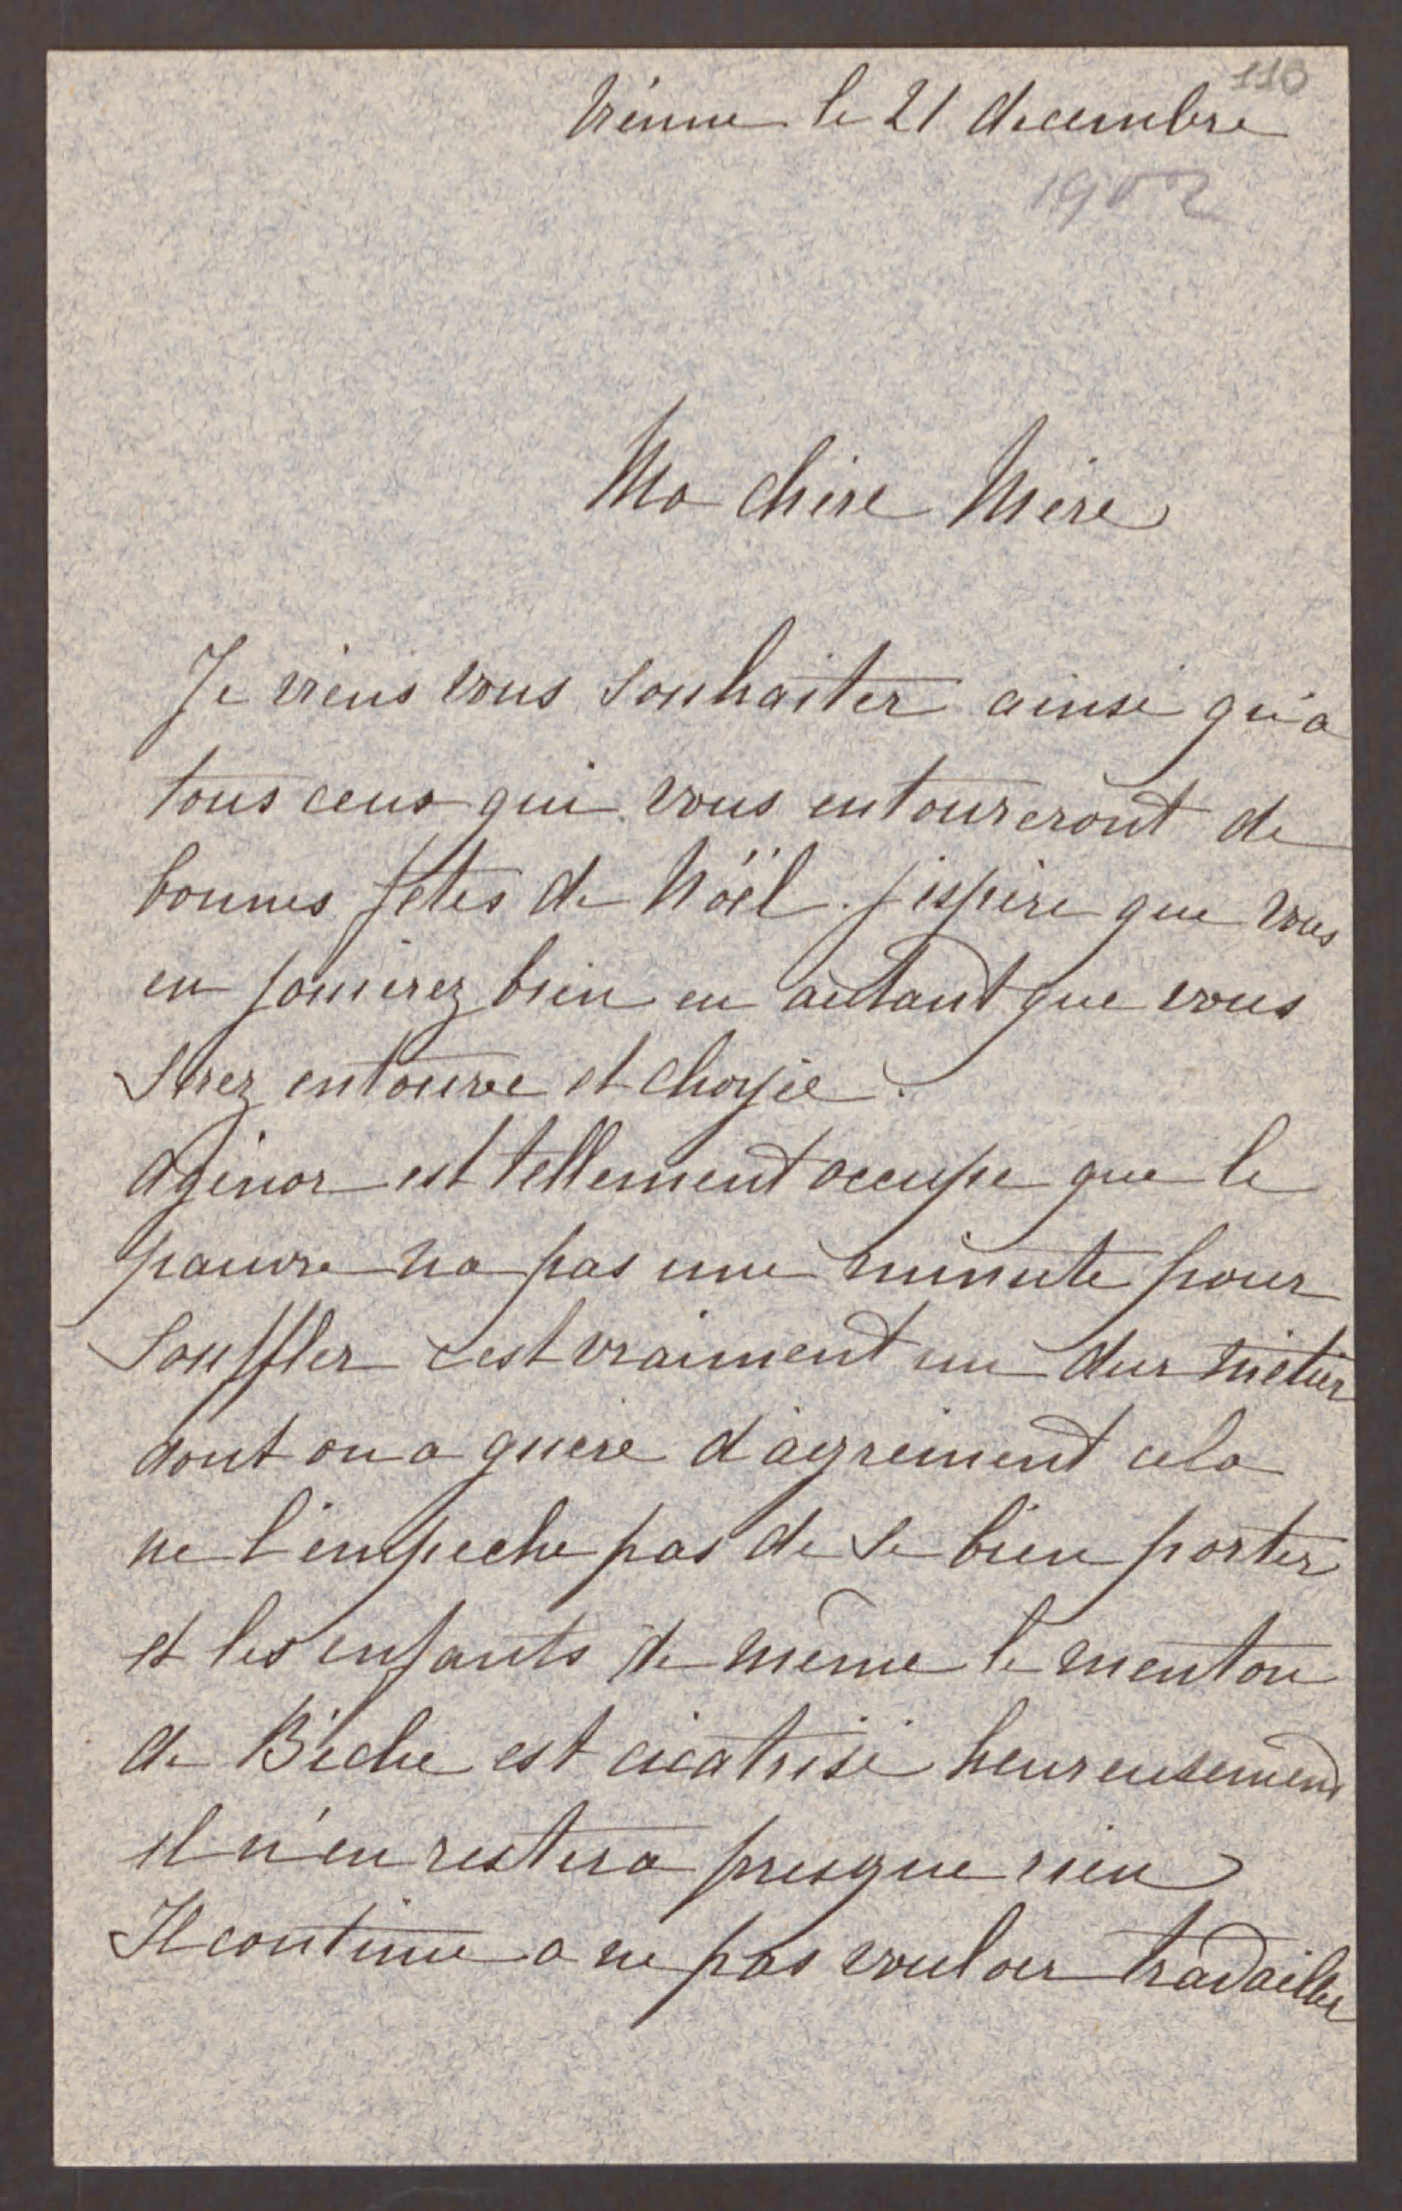 110
Vienne le 21 decembre
1902
Ma chère Mère
Je viens vous souhaiter ainsi qu'a
tous ceux qui vous entoureront de
bonnes fêtes de Noël. j'espère que vous
en jouirez bien en autant que vous
serez entourée et choyée.
Agénor est tellement occupé que le
pauvre na pas une minute pour
souffler c'est vraiment un dur métier
dont on a guère d'agrément cela
ne l'empeche pas de se bien porter
et les enfants de même le menton
de Béche est cicatrisé heureusement
il n'en restera presque rien
Il continue a ne pas vouloir travailler